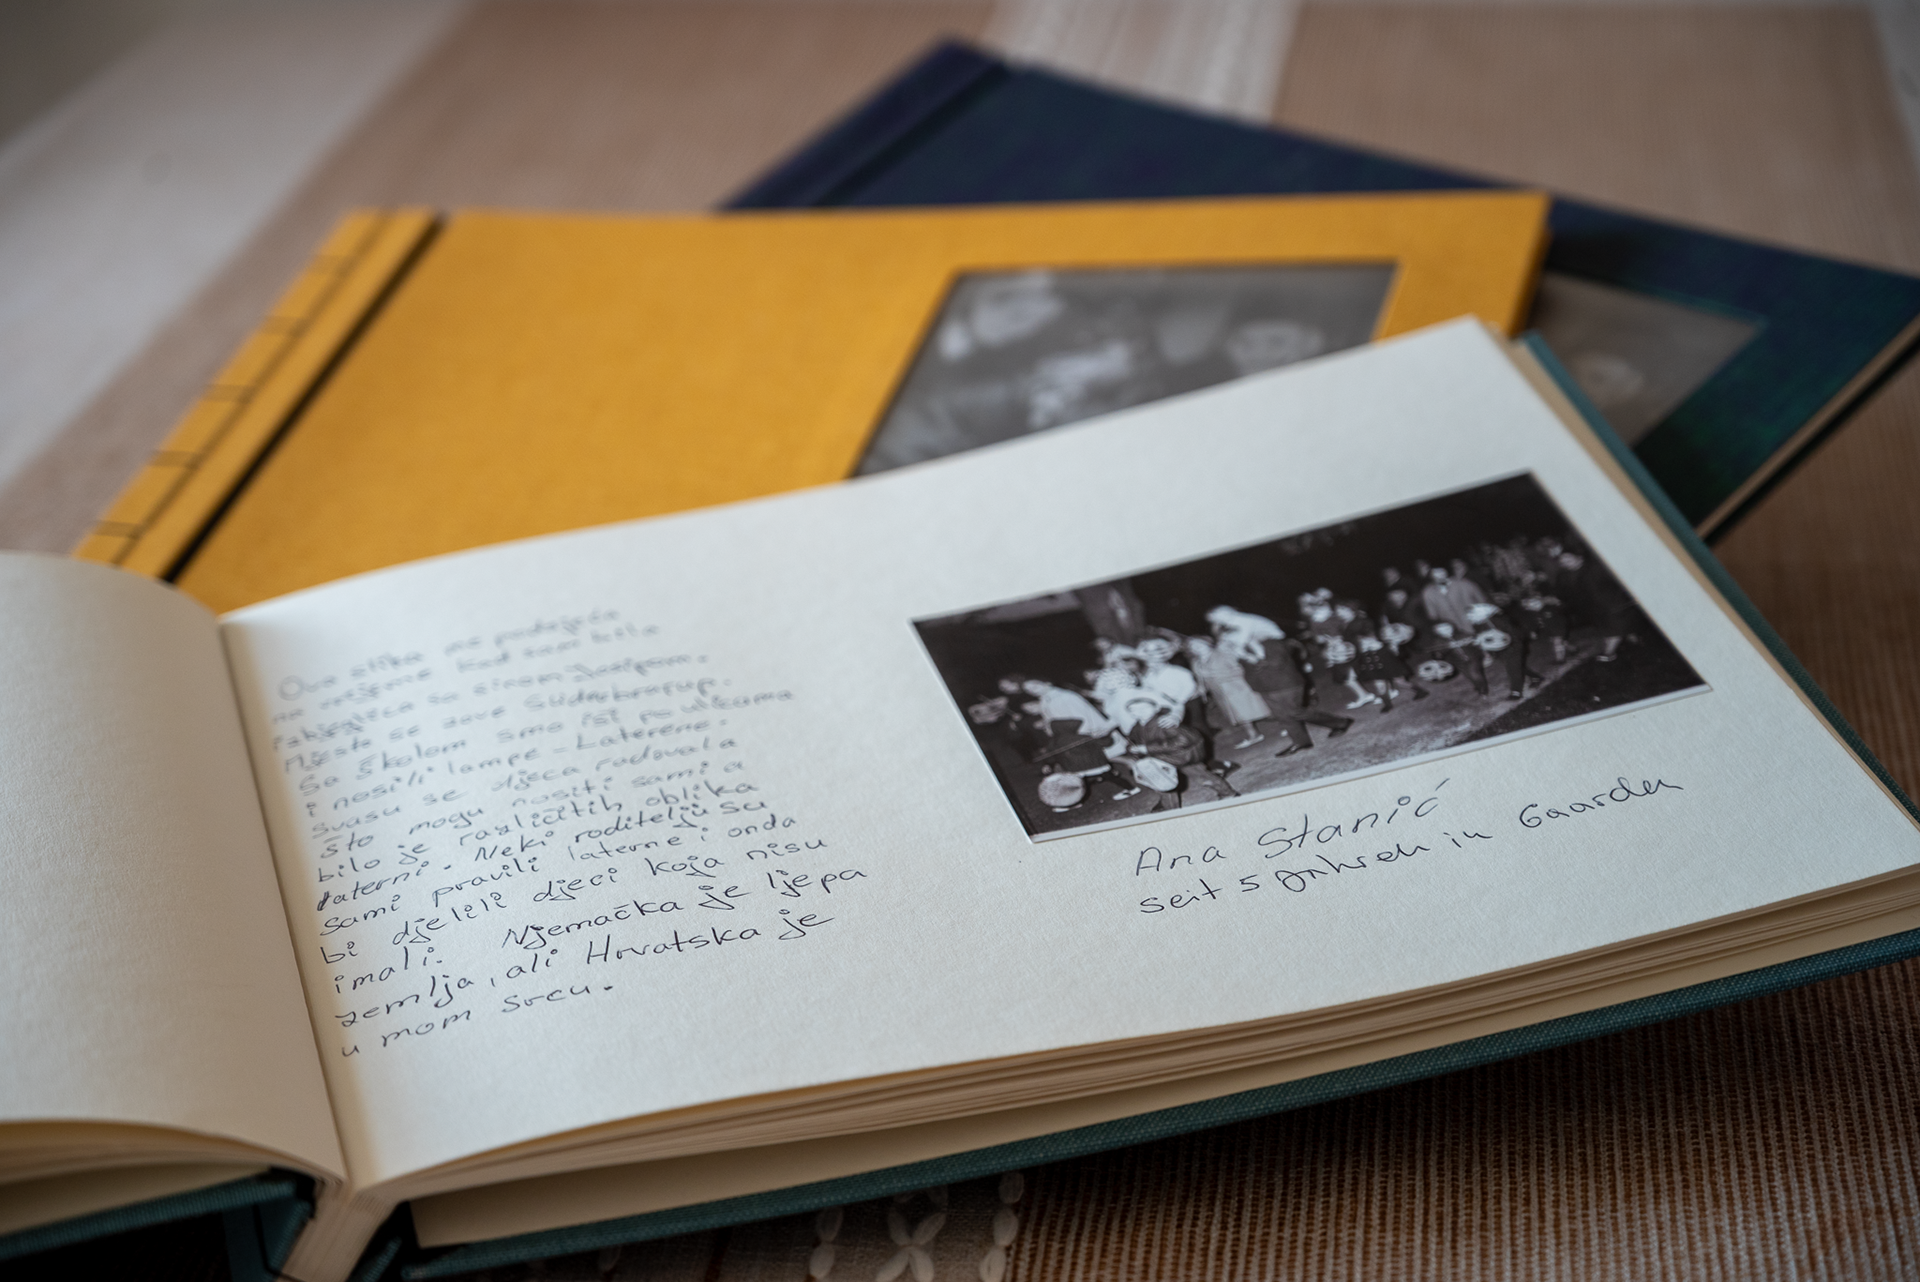 Ova slika me podsjeća
na vrijeme kad sam bila
izbjeglica sa sinom Josipom.
Mjesto se zove Süderbrarup.
Sa školom smo išli po ulicama
i nosili lampe - Laterene.
Svasu se djeca radovala
što mogu nositi sami a
bilo je različitih oblika
laterni. Neki roditelji su
sami pravili laterne i onda
bi djelili djeci koja nisu
imali. Njemačka je ljepa
zemlja, ali Hrvatska je
u mom srcu.
Ana Stanić
seit 5 Jahren in Gaarden